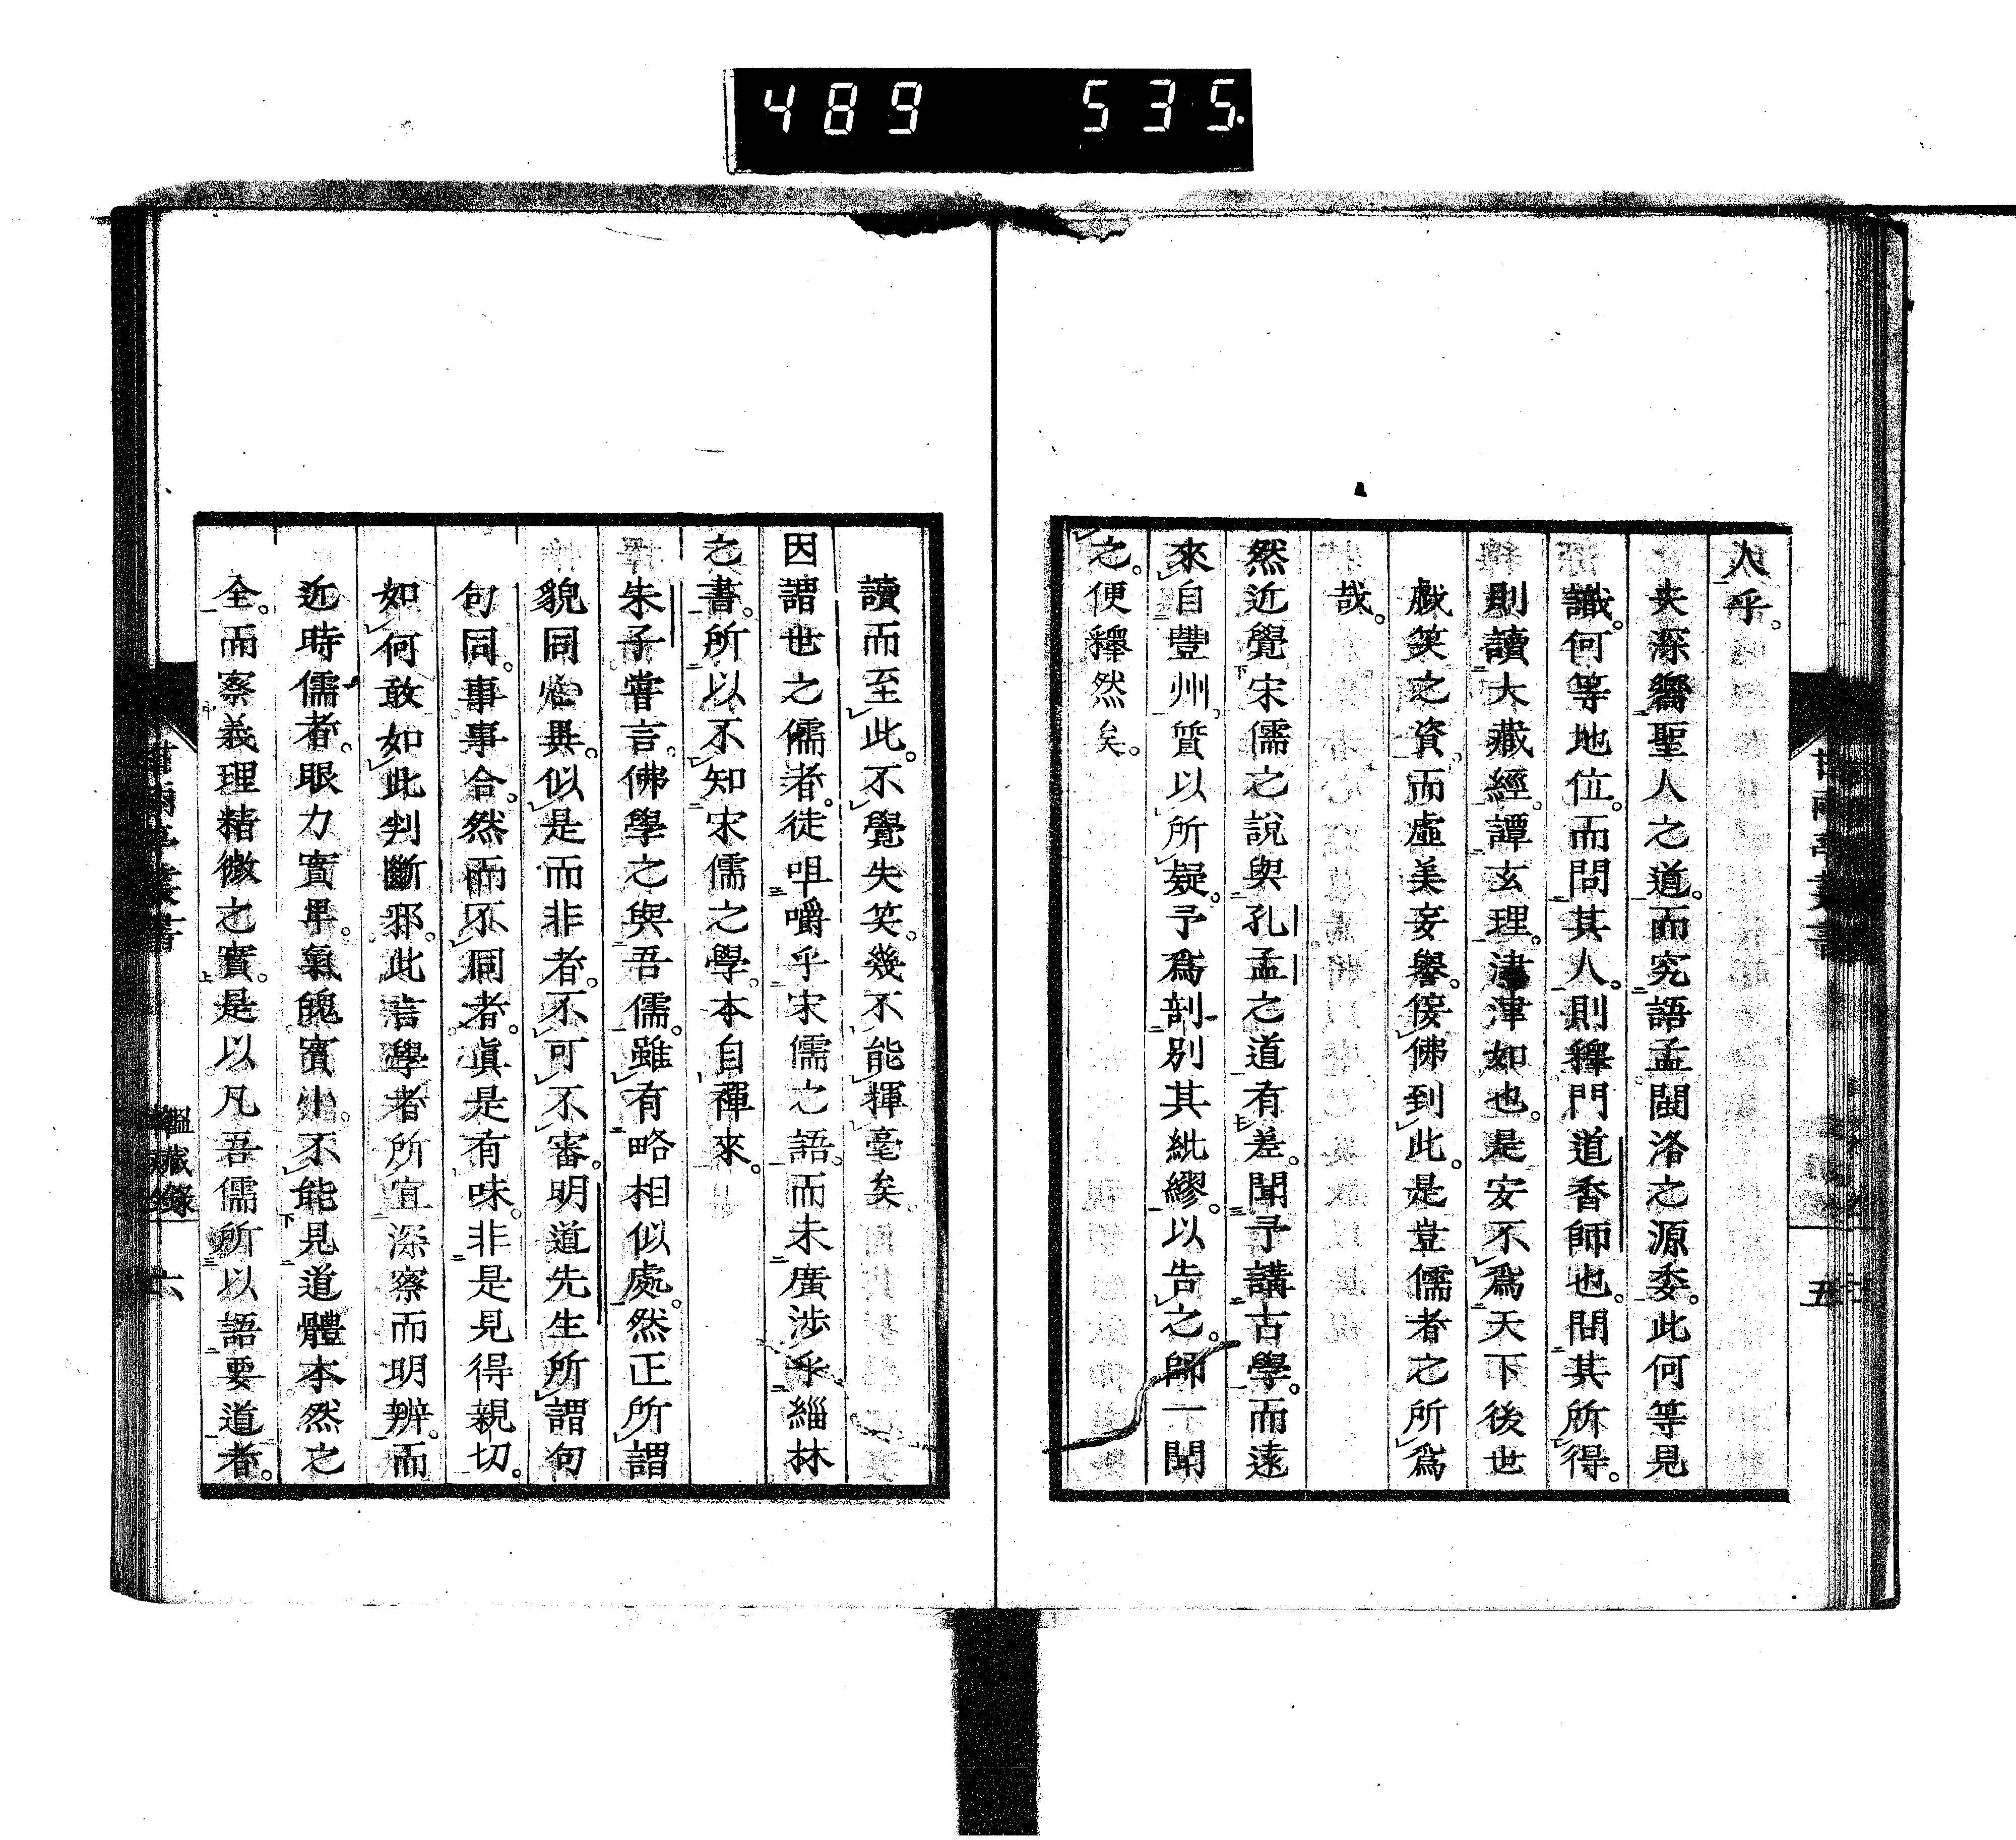 489 535.
人乎。
夫深嚮聖人之道。而究語孟閩洛之源委。此何等見
識。何等地位。而問其人。則釋門道香師也。問其所得。
則讀大藏經。譚玄理。津津如也。是安不爲天下後世
戲笑之資。而虛美妄譽。侫佛到此。是豈儒者之所爲
哉。
然近覺宋儒之說與孔孟之道有差。聞予講古學。而遠
來自豐州。質以所疑。予爲剖別其紕繆。以告之。師一聞
之。便釋然矣。
五
讀而至此。不覺失笑。幾不能揮毫矣。
因謂世之儒者。徒咀嚼乎宋儒之語。而未廣涉乎緇林
之書。所以不知宋儒之學。本自禪來。
朱子嘗言。佛學之與吾儒。雖有略相似處。然正所謂
貌同心異。似是而非者。不可不審。明道先生所謂句
句同。事事合。然而不同者。眞是有味。非是見得親切。
如何敢如此判斷邪。此言學者所宜深察而明辨。而
近時儒者。眼力實卑。氣魄實小。不能見道體本然之
全。而察義理精微之實。是以凡吾儒所以語要道者。
六